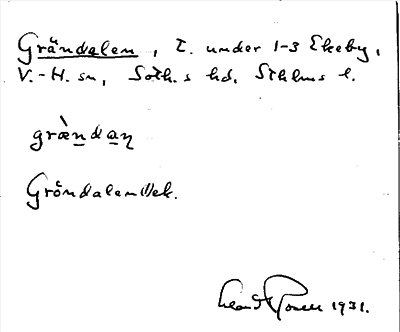 Grändalen, T. under 1-3 Ekeby,
V.-H. sn, Soth.s hd. Sthlms l.
græ̀ndan
Gröndalen Uek.
1931.